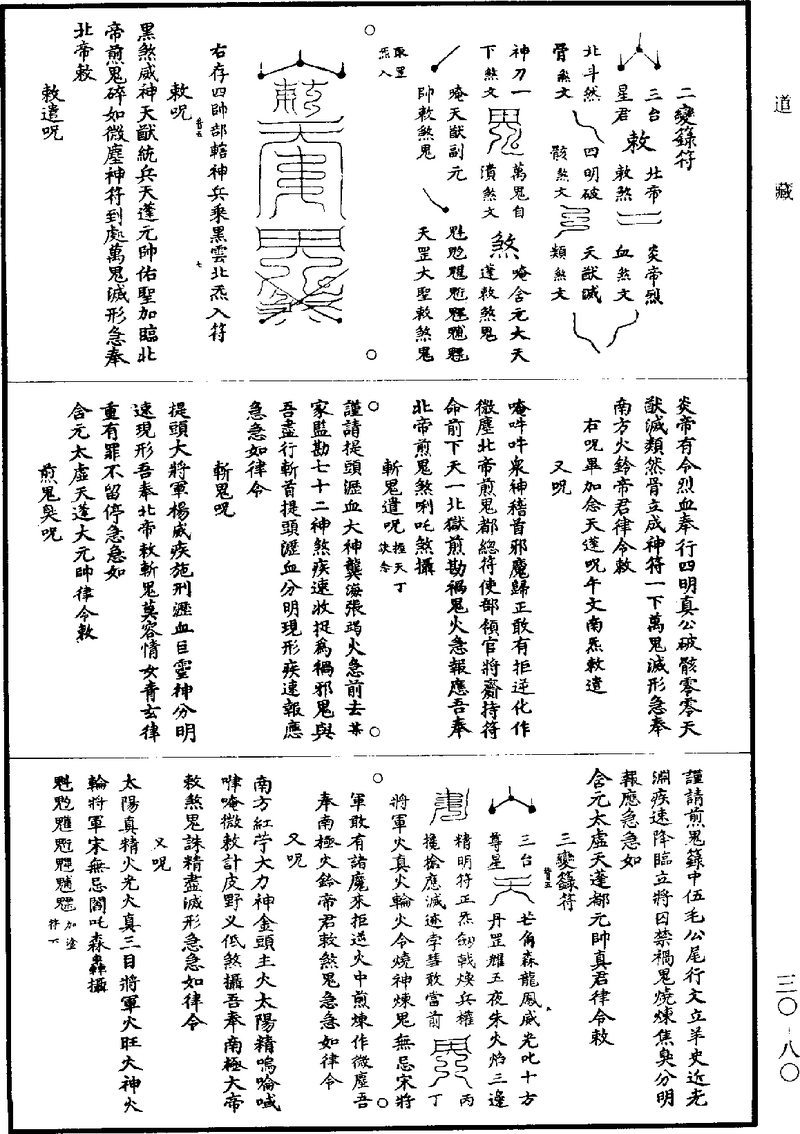 道藏
二變籙符
三台 北帝 炎帝烈
星君 敕 敕煞 血煞文
北斗然 四明破 天猷滅
骨煞文 骸煞文 類煞文
神刀一 萬鬼自 唵含元大天
下煞文 潰煞文 煞 蓬敕煞鬼
唵天猷副元 魁𩲃
帥敕煞鬼 天罡大聖敕煞鬼
取罡
炁入
右存四帥部轄神兵乘黑雲北炁入符
敕呪
黑煞威神天猷統兵天蓬元帥佑聖加臨北
帝煎鬼碎如微塵神符到處萬鬼滅形急奉
北帝敕
敕遣呪
炎帝有令烈血奉行四明真公破骸零零天
猷滅類然骨立成神符一下萬鬼滅形急奉
南方火鈴帝君律令敕
右呪畢加念天蓬呪午文南炁敕遣
又呪
唵吽吽眾神稽首邪魔歸正敢有拒逆化作
微塵北帝煎鬼都總符使部領官將齎持符
命前下天一北獄煎勘禍鬼火急報應吾奉
北帝煎鬼煞唎吒煞攝
斬鬼遣呪
謹請提頭瀝血大神龔海張鴻火急前去某
家監勘七十二神煞疾速收捉為禍邪鬼與
吾盡行斬首提頭瀝血分明現形疾速報應
急急如律令
斬鬼呪
提頭大將軍楊威疾施刑瀝血目靈神分明
速現形吾奉北帝敕斬鬼莫容情女青玄律
重有罪不留停急急如
含元太虛天蓬大元帥律令敕
煎鬼臭呪
謹請煎鬼籙中伍毛公尾行文立羊史近光
淵疾速降臨立將囚禁禍鬼燒煉焦臭分明
報應急急如
含元太虛天蓬都元帥真君律令敕
三變籙符
三台 芒角森龍鳳威光叱十方
尊星 丹罡耀五夜朱火焰三邊
精明符正炁劍戟煥兵權 丙
攙搶應滅迹孛彗敢當前 丁
將軍火真火輪火令燒神煉鬼無忌宋將
軍敢有諸魔來拒逆火中煎煉作微塵吾
奉南極火鈴帝君敕煞鬼急急如律令
又呪
南方紅芓大力神金頭主火太陽精嗚唵
唵微敕計皮野义低煞攝吾奉南極大帝
敕煞鬼誅精盡滅形急急如律令
又呪
太陽真精火光火真三目將軍火旺火神火
輪將軍宋無忌閻吒森轟攝
三〇-八〇